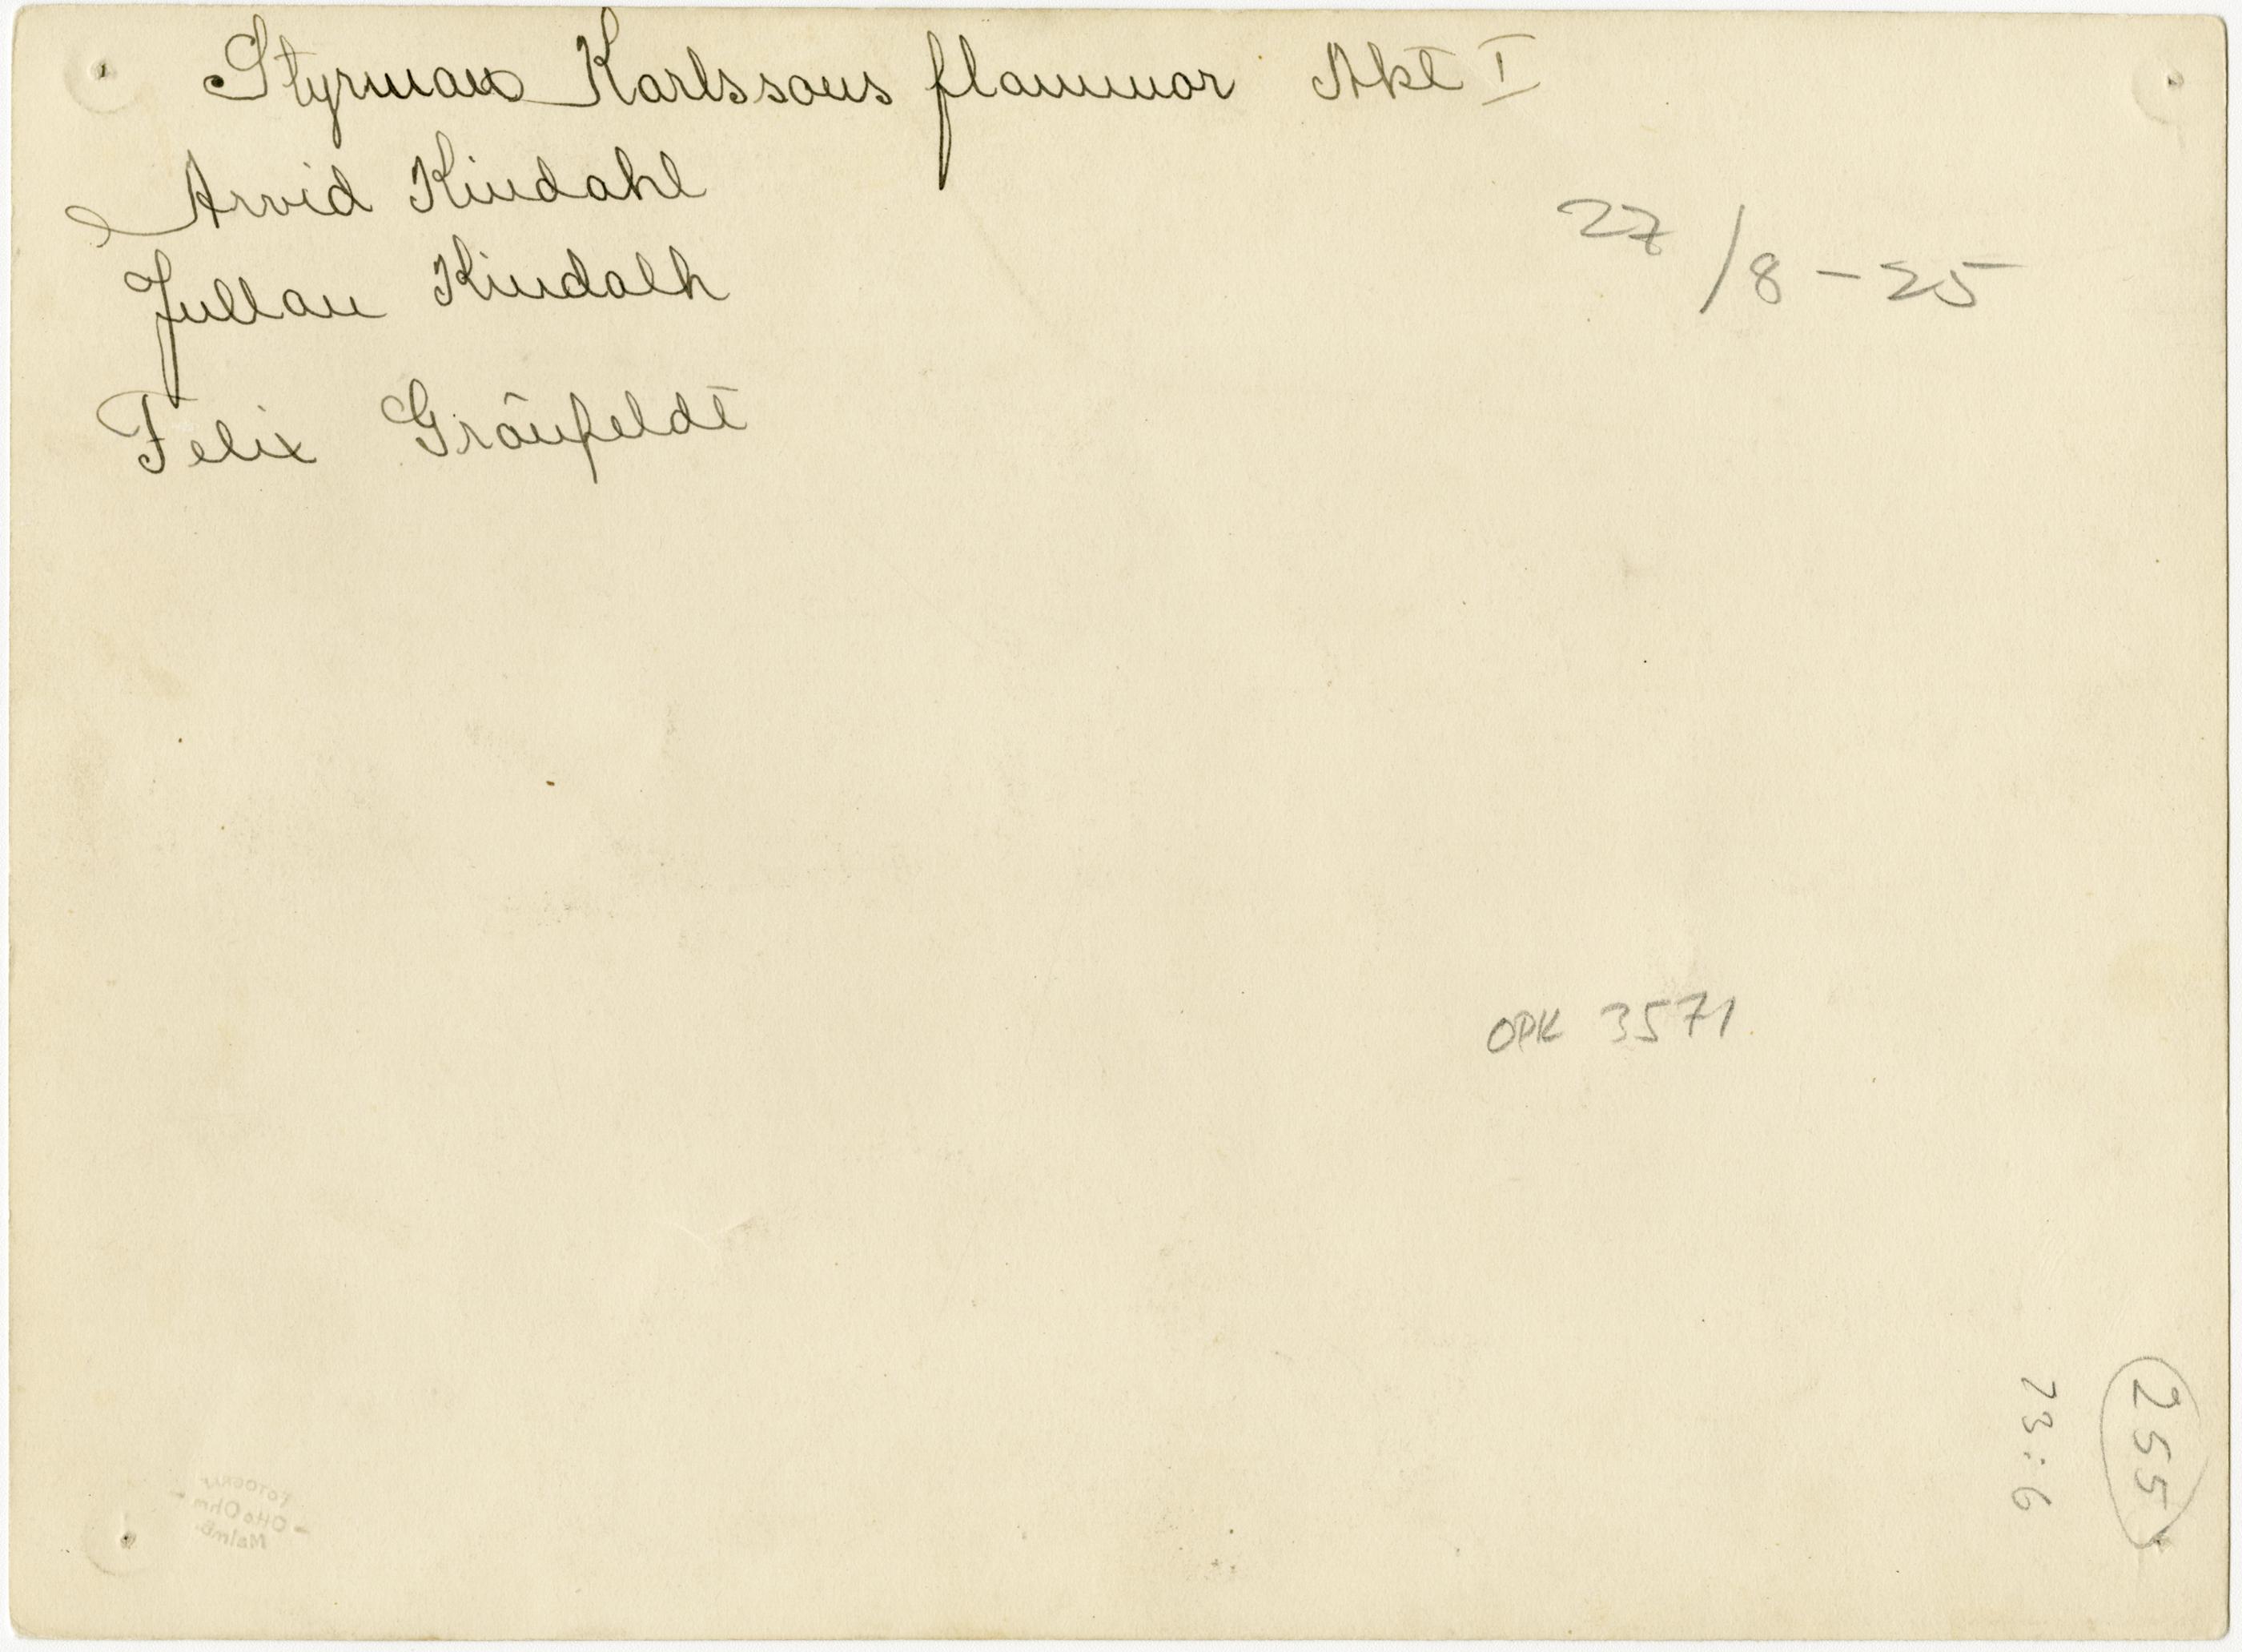 Styrman Karlssons flammor Akt I
Arvid Kindahl
Jullan Kindalh
Felix Grönfeldt
27/8-25
OPK 3571
23:6
255
FOTOGRAF
- Otto Ohm -
Malmö.